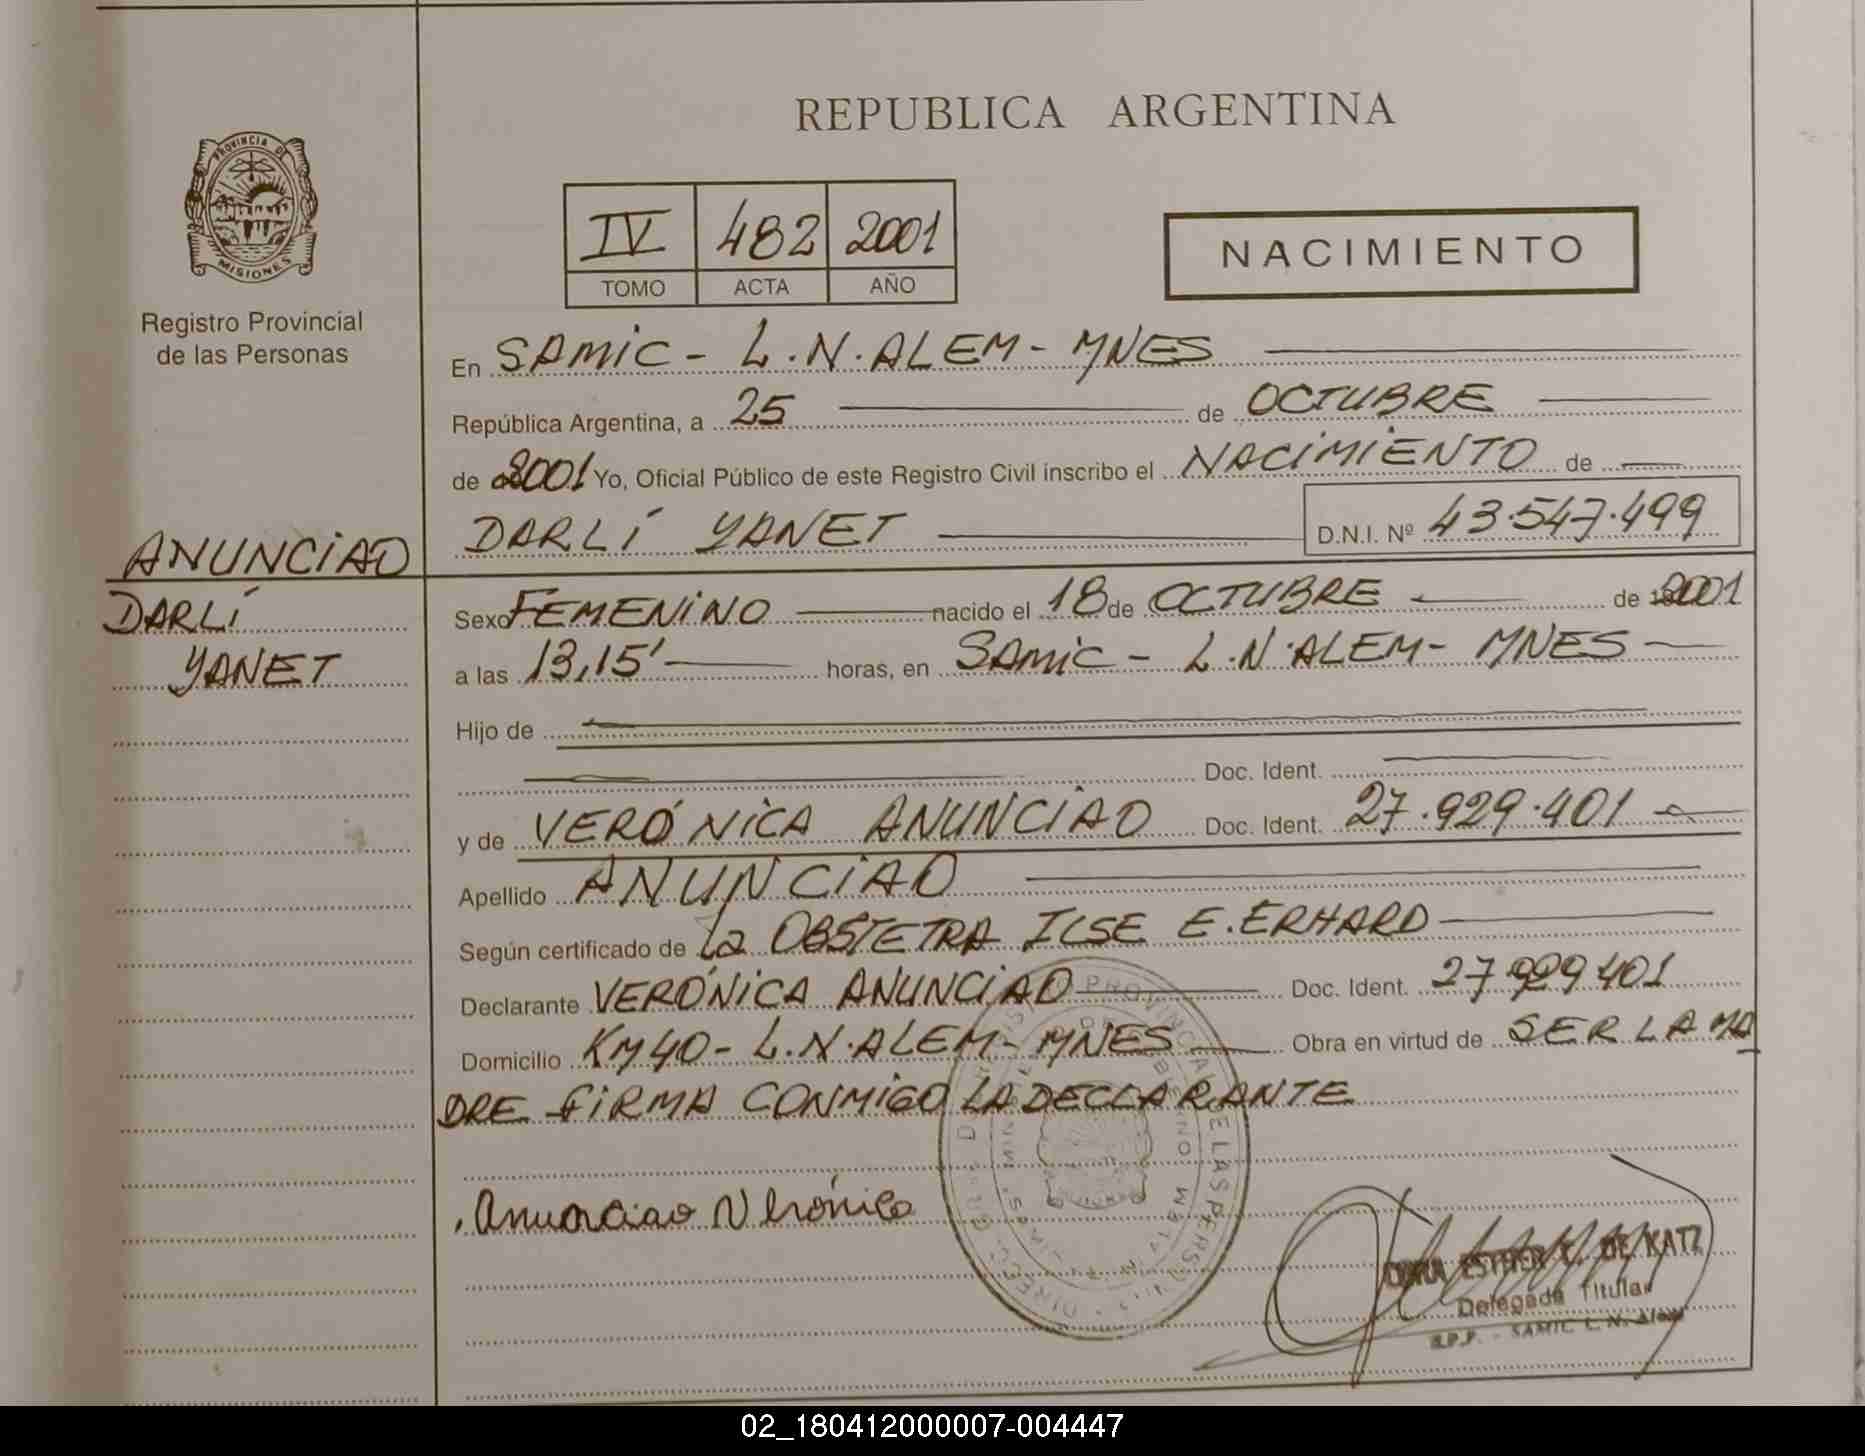 REPUBLICA ARGENTINA
PROVINCIA DE
MISIONES
Registro Provincial
de las Personas
IV 482 2001
TOMO ACTA AÑO
NACIMIENTO
En SAMIC - L.N. ALEM - MNES
República Argentina, a 25 de OCTUBRE
de 2001 Yo, Oficial Público de este Registro Civil inscribo el NACIMIENTO de
DARLÍ YANET D.N.I. Nº 43.547.499
ANUNCIAO
DARLÍ
YANET
Sexo FEMENINO nacido el 18 de OCTUBRE de 2001
a las 13,15' horas, en SAMIC - L.N. ALEM - MNES
Hijo de
Doc. Ident.
y de VERÓNICA ANUNCIAO Doc. Ident. 27.929.401
Apellido ANUNCIAO
Según certificado de la OBSTETRA ILSE E. ERHARD
Declarante VERÓNICA ANUNCIAO Doc. Ident. 27 929 401
Domicilio KM 40 - L.N. ALEM - MNES Obra en virtud de SER LA MA
DRE FIRMA CONMIGO LA DECLARANTE
Anunciao Verónica
ESTHER DE KATZ
Delegada Titular
R.P.P. - SAMIC L. N. Alem
02_180412000007-004447